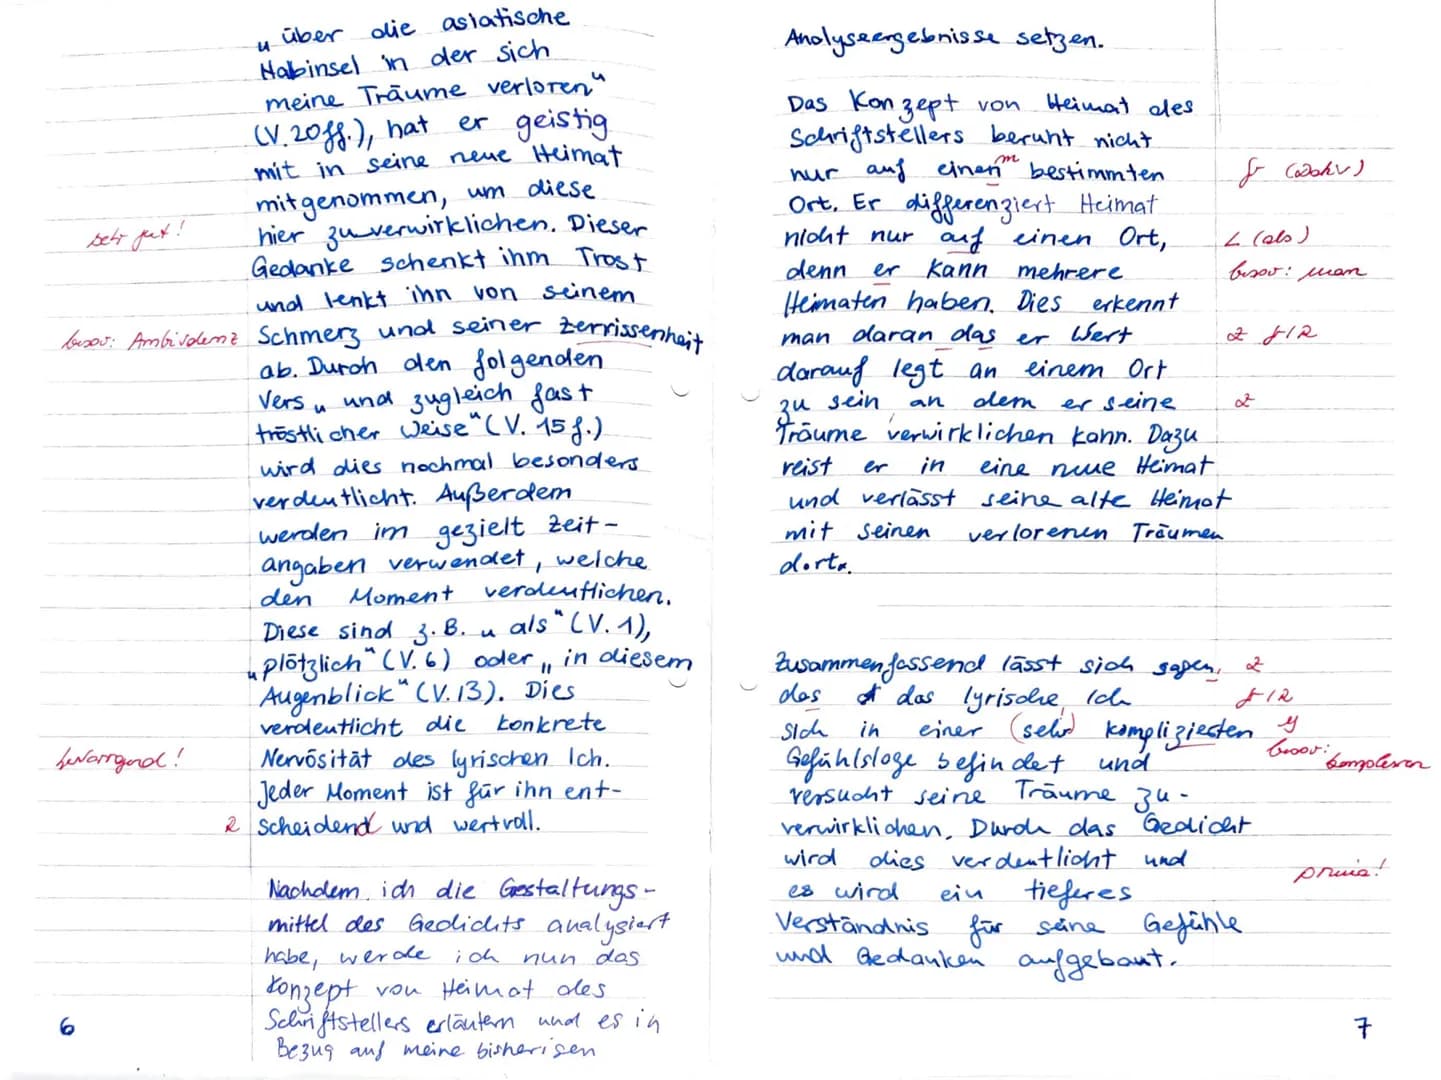 „über die asiatische
Halbinsel in der sich
meine Träume verloren“
(V. 20ff.), hat er geistig
mit in seine neue Heimat
mitgenommen, um diese
sehr gut!
hier zu verwirklichen. Dieser
Gedanke schenkt ihm Trost
und lenkt ihn von seinem
besser: Ambivalenz
Schmerz und seiner Zerrissenheit
ab. Durch den folgenden
Vers „und zugleich fast
tröstlicher Weise“ (V. 15f.)
wird dies nochmal besonders
verdeutlicht. Außerdem
werden im gezielt Zeit-
angaben verwendet, welche
den Moment verdeutlichen.
Diese sind z.B. „als“ (V. 1),
„plötzlich“ (V. 6) oder „in diesem
Augenblick“ (V. 13). Dies
verdeutlicht die konkrete
hervorragend!
Nervösität des lyrischen Ich.
Jeder Moment ist für ihn ent-
R
scheidend und wertvoll.
Nachdem ich die Gestaltungs-
mittel des Gedichts analysiert
habe, werde ich nun das
Konzept von Heimat des
Schriftstellers erläutern und es in
Bezug auf meine bisherigen
6
Analyseergebnisse setzen.
Das Konzept von Heimat des
Schriftstellers beruht nicht
nur auf einen m bestimmten
Gr (Dativ)
Ort. Er differenziert Heimat
nicht nur auf einen Ort,
L (als)
denn er kann mehrere
besser: man
Heimaten haben. Dies erkennt
man daran das er Wert
Z Gr/R
darauf legt an einem Ort
zu sein an dem er seine
Z
Träume verwirklichen kann. Dazu
reist er in eine neue Heimat
und verlässt seine alte Heimat
mit seinen verlorenen Träumen
dort.
Zusammenfassend lässt sich sagen,
Z
das das lyrische Ich
Gr/R
sich in einer (sehr) kompliziesten
besser: komplexen
Gefühlsloge befindet und
versucht seine Träume zu-
verwirklichen. Durch das Gedicht
wird dies verdeutlicht und
prima!
es wird ein tieferes
Verständnis für seine Gefühle
und Gedanken aufgebaut.
7